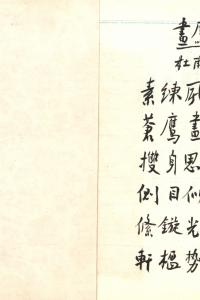 畫
杜甫
素練風
蒼鷹畫
㩳身思
側目似
絛鏇光
軒楹勢